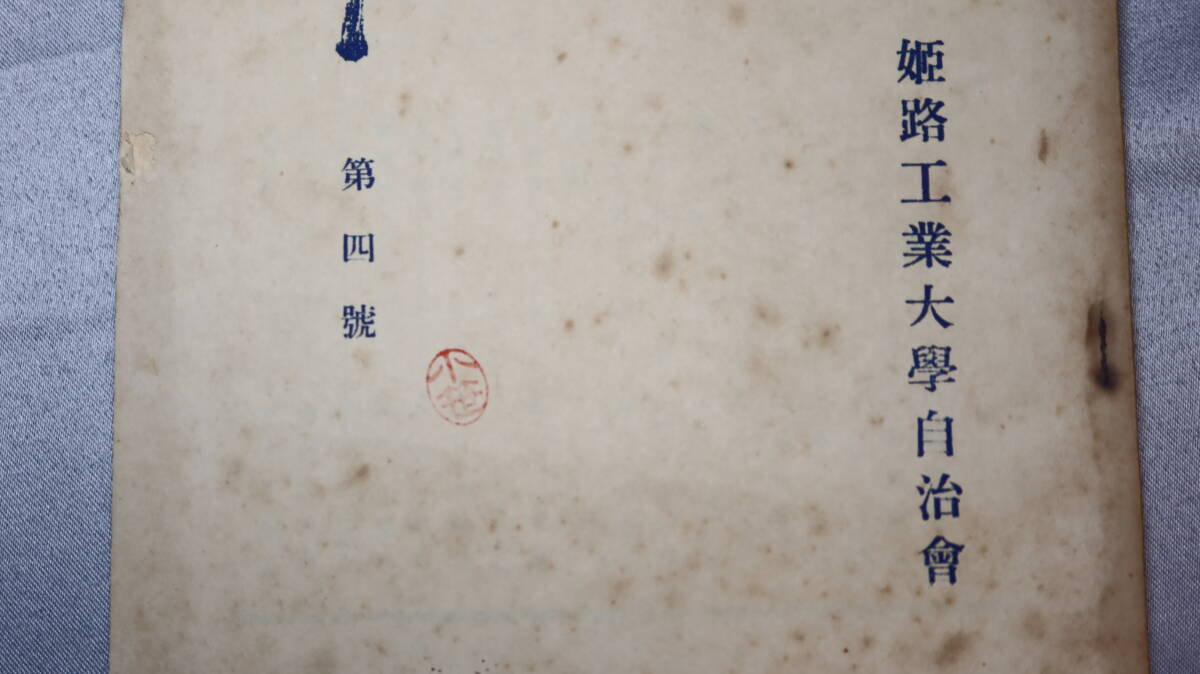 姫路工業大學自治會
第四號
小笹